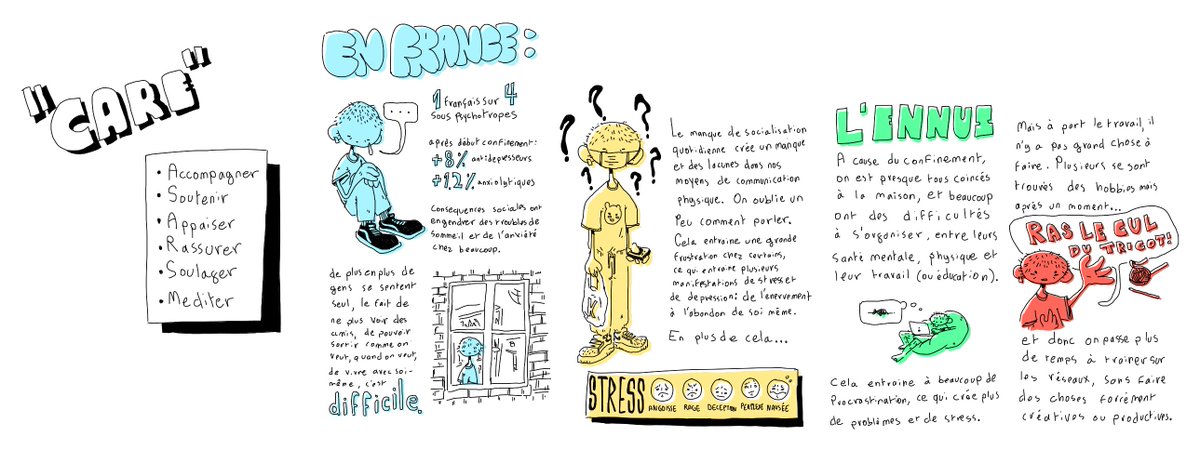 "CARE"
• Accompagner
• Soutenir
• Appaiser
• Rassurer
• Soulager
• Mediter
EN FRANCE :
...
1 français sur 4
sous psychotropes
après début confinement :
+8% antidepresseurs
+1,2% anxiolytiques
Consequences sociales ont
engendrer des troubles de
sommeil et de l'anxiété
chez beaucoup.
de plus en plus de
gens se sentent
seul, le fait de
ne plus voir des
amis, de pouvoir
sortir comme on
veut, quand on veut,
de vivre avec soi-
même, c'est
difficile.
? ? ? ? ? ?
Le manque de socialisation
quotidienne crée un manque
et des lacunes dans nos
moyens de communication
physique. On oublie un
Peu comment parler.
Cela entraine une grande
frustration chez certains,
ce qui entraine plusieurs
manifestations de stress et
de depression: de l'enervement
à l'abandon de soi même.
En plus de cela...
STRESS
ANGOISSE RAGE DECEPTION PERPLEXE NAUSÉE
L'ENNUI
A cause du confinement,
on est presque tous coincés
à la maison, et beaucoup
ont des difficultés
à s'organiser, entre leurs
santé mentale, physique et
leur travail (ou éducation).
Cela entraine à beaucoup de
Procrastination, ce qui crée plus
de problèmes et de stress.
Mais à part le travail, il
n'y a pas grand chose à
faire. Plusieurs se sont
trouvés des hobbies mais
après un moment...
RAS LE CUL
DU TRICOT!
et donc on passe plus
de temps à trainer sur
les réseaux, sans faire
des choses forcément
créatives ou productives.